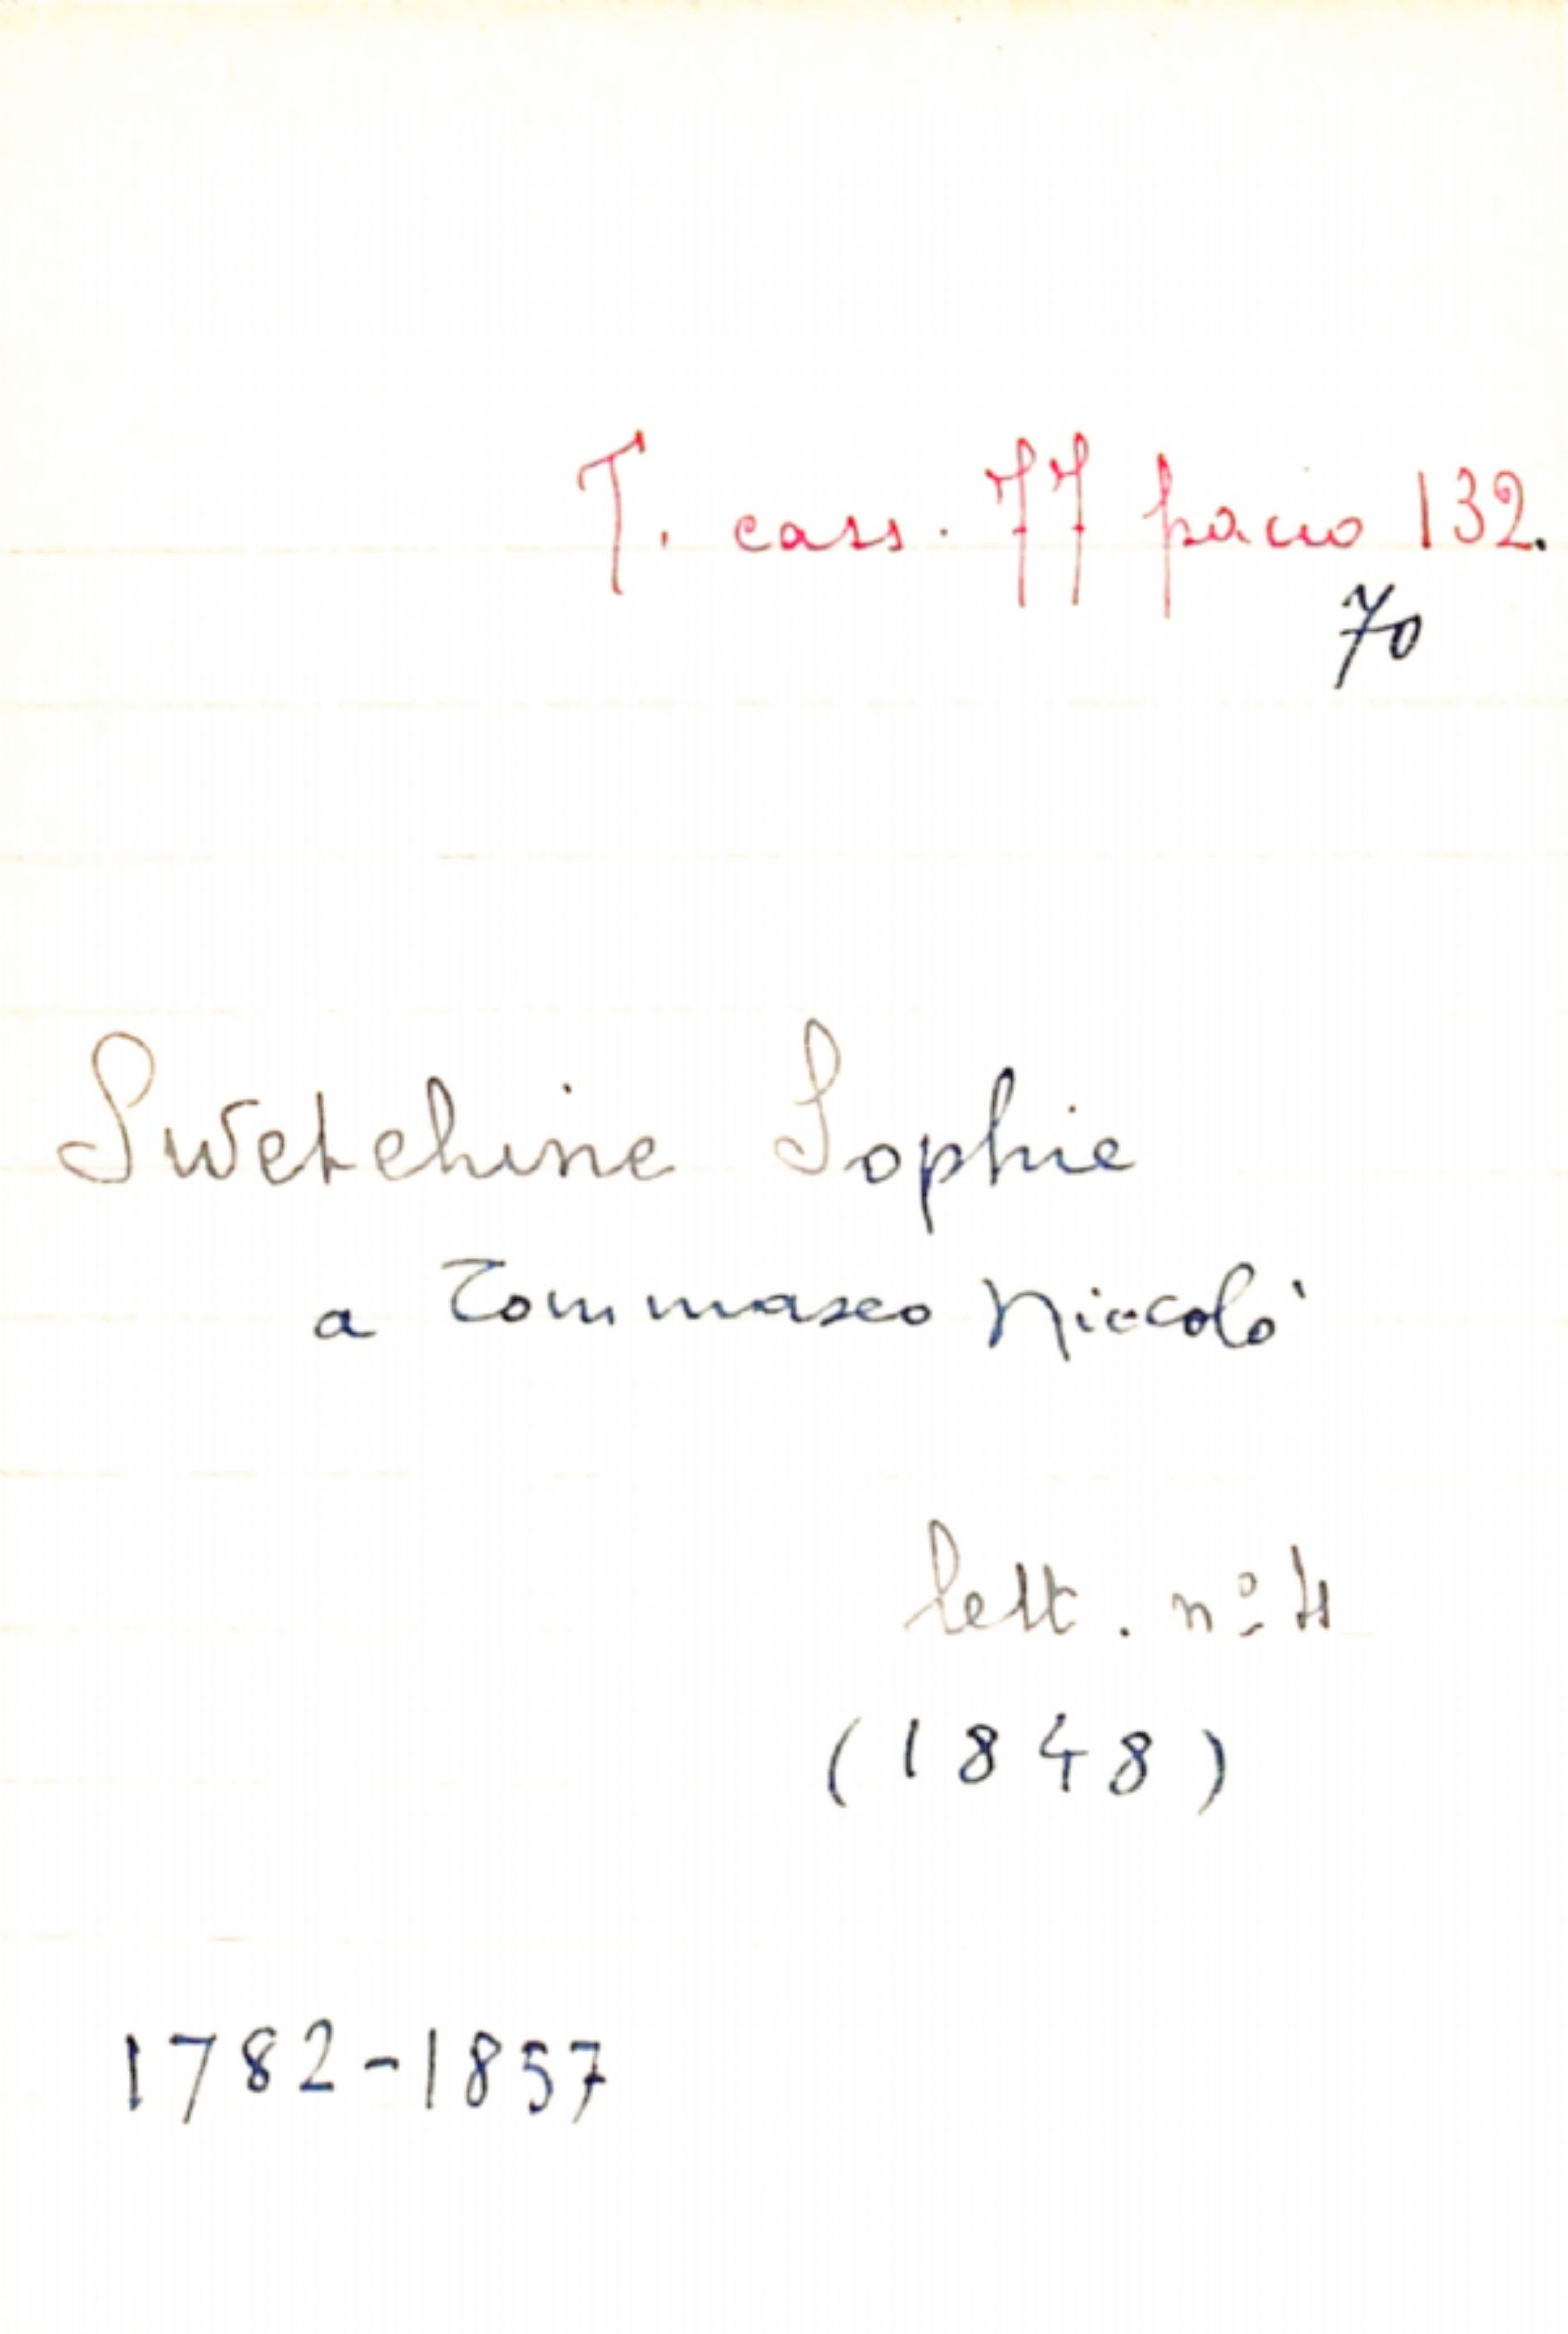 T. cass. 77 pacco 132.
70
Swetchine Sophie
a Tommaseo Niccolò
lett. nº 4
(1848)
1782-1857